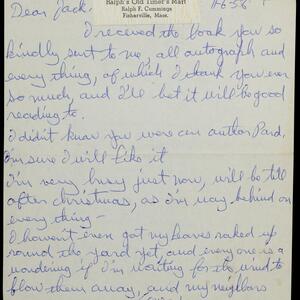 Ralph's Old Timer's Mart
Ralph F. Cummings
Fisherville, Mass.
Dear Jack. 11-6-56
I received the book you so
kindly sent to me, all autograph and
every thing, of which I thank you ever
so much, and I'll bet it will be good
reading to.
I didn't know you were an author Pard.
I'm sure I will like it
I'm very busy just now, will be till
after christmas, as I'm way behind on
every thing -
I haven't even got my leaves raked up
round the yard yet and every one is a
wondering if I'm waiting for the wind to
blow them away, and my neighbors